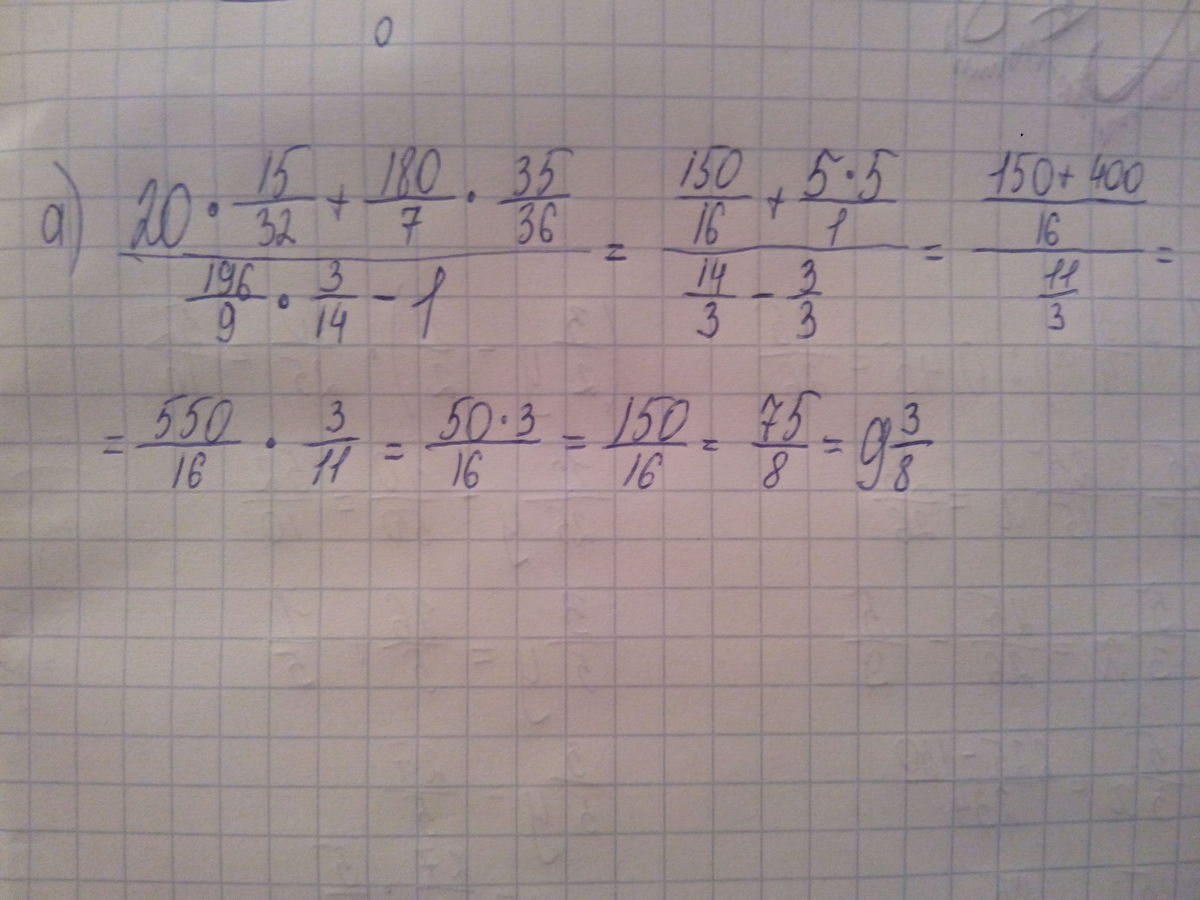 0
a) (20 · 15/32 + 180/7 · 35/36)/(196/9 · 3/14 - 1) = (150/16 + 5·5/1)/(14/3 - 3/3) = ((150+400)/16)/(11/3) =
= 550/16 · 3/11 = 50·3/16 = 150/16 = 75/8 = 9 3/8